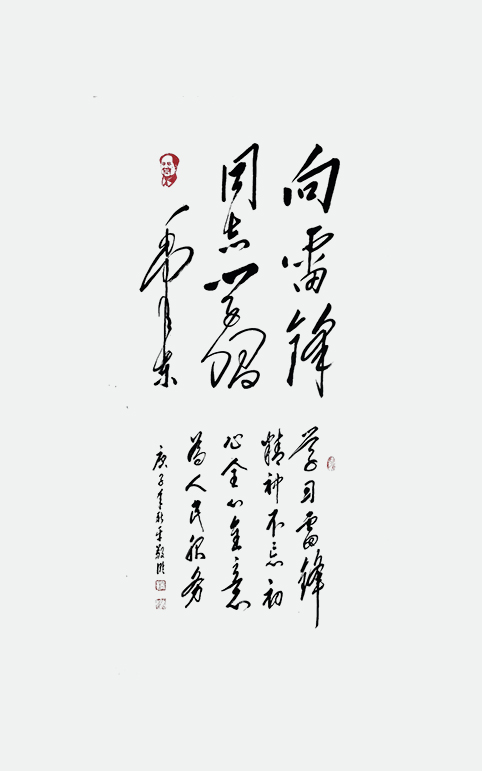 向雷锋
同志学习
毛泽东
学习雷锋
精神不忘初
心全心全意
为人民服务
庚子年秋